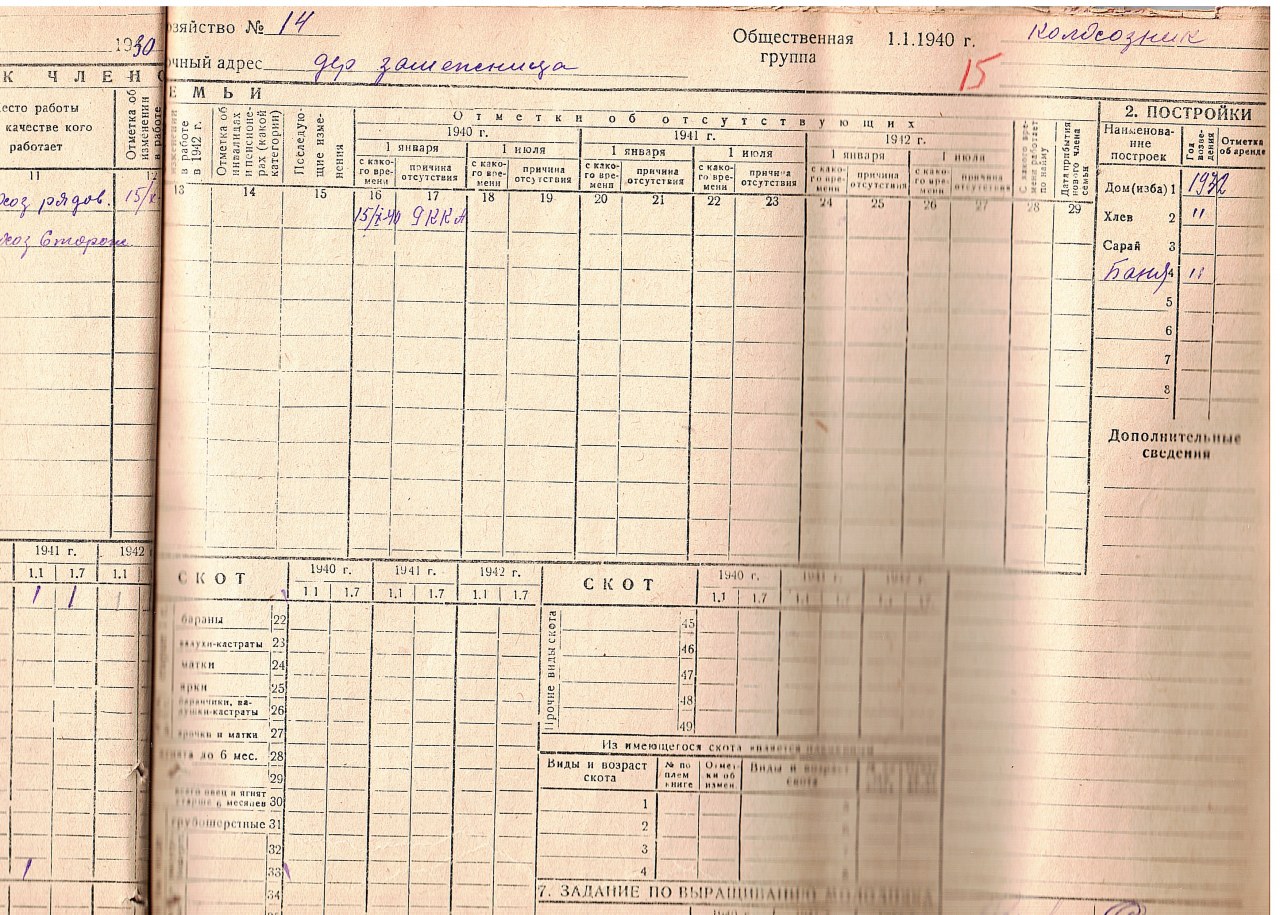 1930
озяйство № 14
Общественная группа 1.1.1940 г. Колхозник
очный адрес
15
К ЧЛЕНО
ЕМЬИ
есто работы
качестве кого
работает
Отметка об изменении в работе
в работе в 1942 г.
Отметка об инвалидах и пенсионерах (какой категории)
Последующие изменения
Отметки об отсутствующих
1940 г. 1941 г. 1942 г.
1 января 1 июля 1 января 1 июля 1 января 1 июля
с какого времени причина отсутствия с какого времени причина отсутствия с какого времени причина отсутствия с какого времени причина отсутствия с какого времени причина отсутствия с какого времени причина отсутствия
Дата прибытия нового члена семьи
11 12 13 14 15 16 17 18 19 20 21 22 23 24 25 26 27 28 29
хоз рядов. 15/х
15/х-40 РККА
хоз Сторож
2. ПОСТРОЙКИ
Наименова-
ние
построек
Год возведения
Отметка об аренде
Дом(изба) 1 1932
Хлев 2 "
Сарай 3
Баня 4 "
5
6
7
8
Дополнительные
сведения
1941 г. 1942
1.1 1.7 1.1
1 1 1
1
СКОТ
1940 г. 1941 г. 1942 г.
1.1 1.7 1.1 1.7 1.1 1.7
бараны 22
валухи-кастраты 23
матки 24
ярки 25
баранчики, ва-
лушки-кастраты 26
ярочки и матки 27
до 6 мес. 28
29
всего овец и ягнят
старше 6 месяцев 30
грубошерстные 31
32
33
34
СКОТ
1940 г. 1941 г. 1942 г.
1.1 1.7 1.1 1.7 1.1 1.7
Прочие виды скота
45
46
47
48
49
Из имеющегося скота является племенным
Виды и возраст
скота
№ по
плем
книге
Отмет-
ки об
измен.
Виды и возраст
скота
1
2
3
4
7. ЗАДАНИЕ ПО ВЫРАЩИВАНИЮ МОЛОДНЯКА